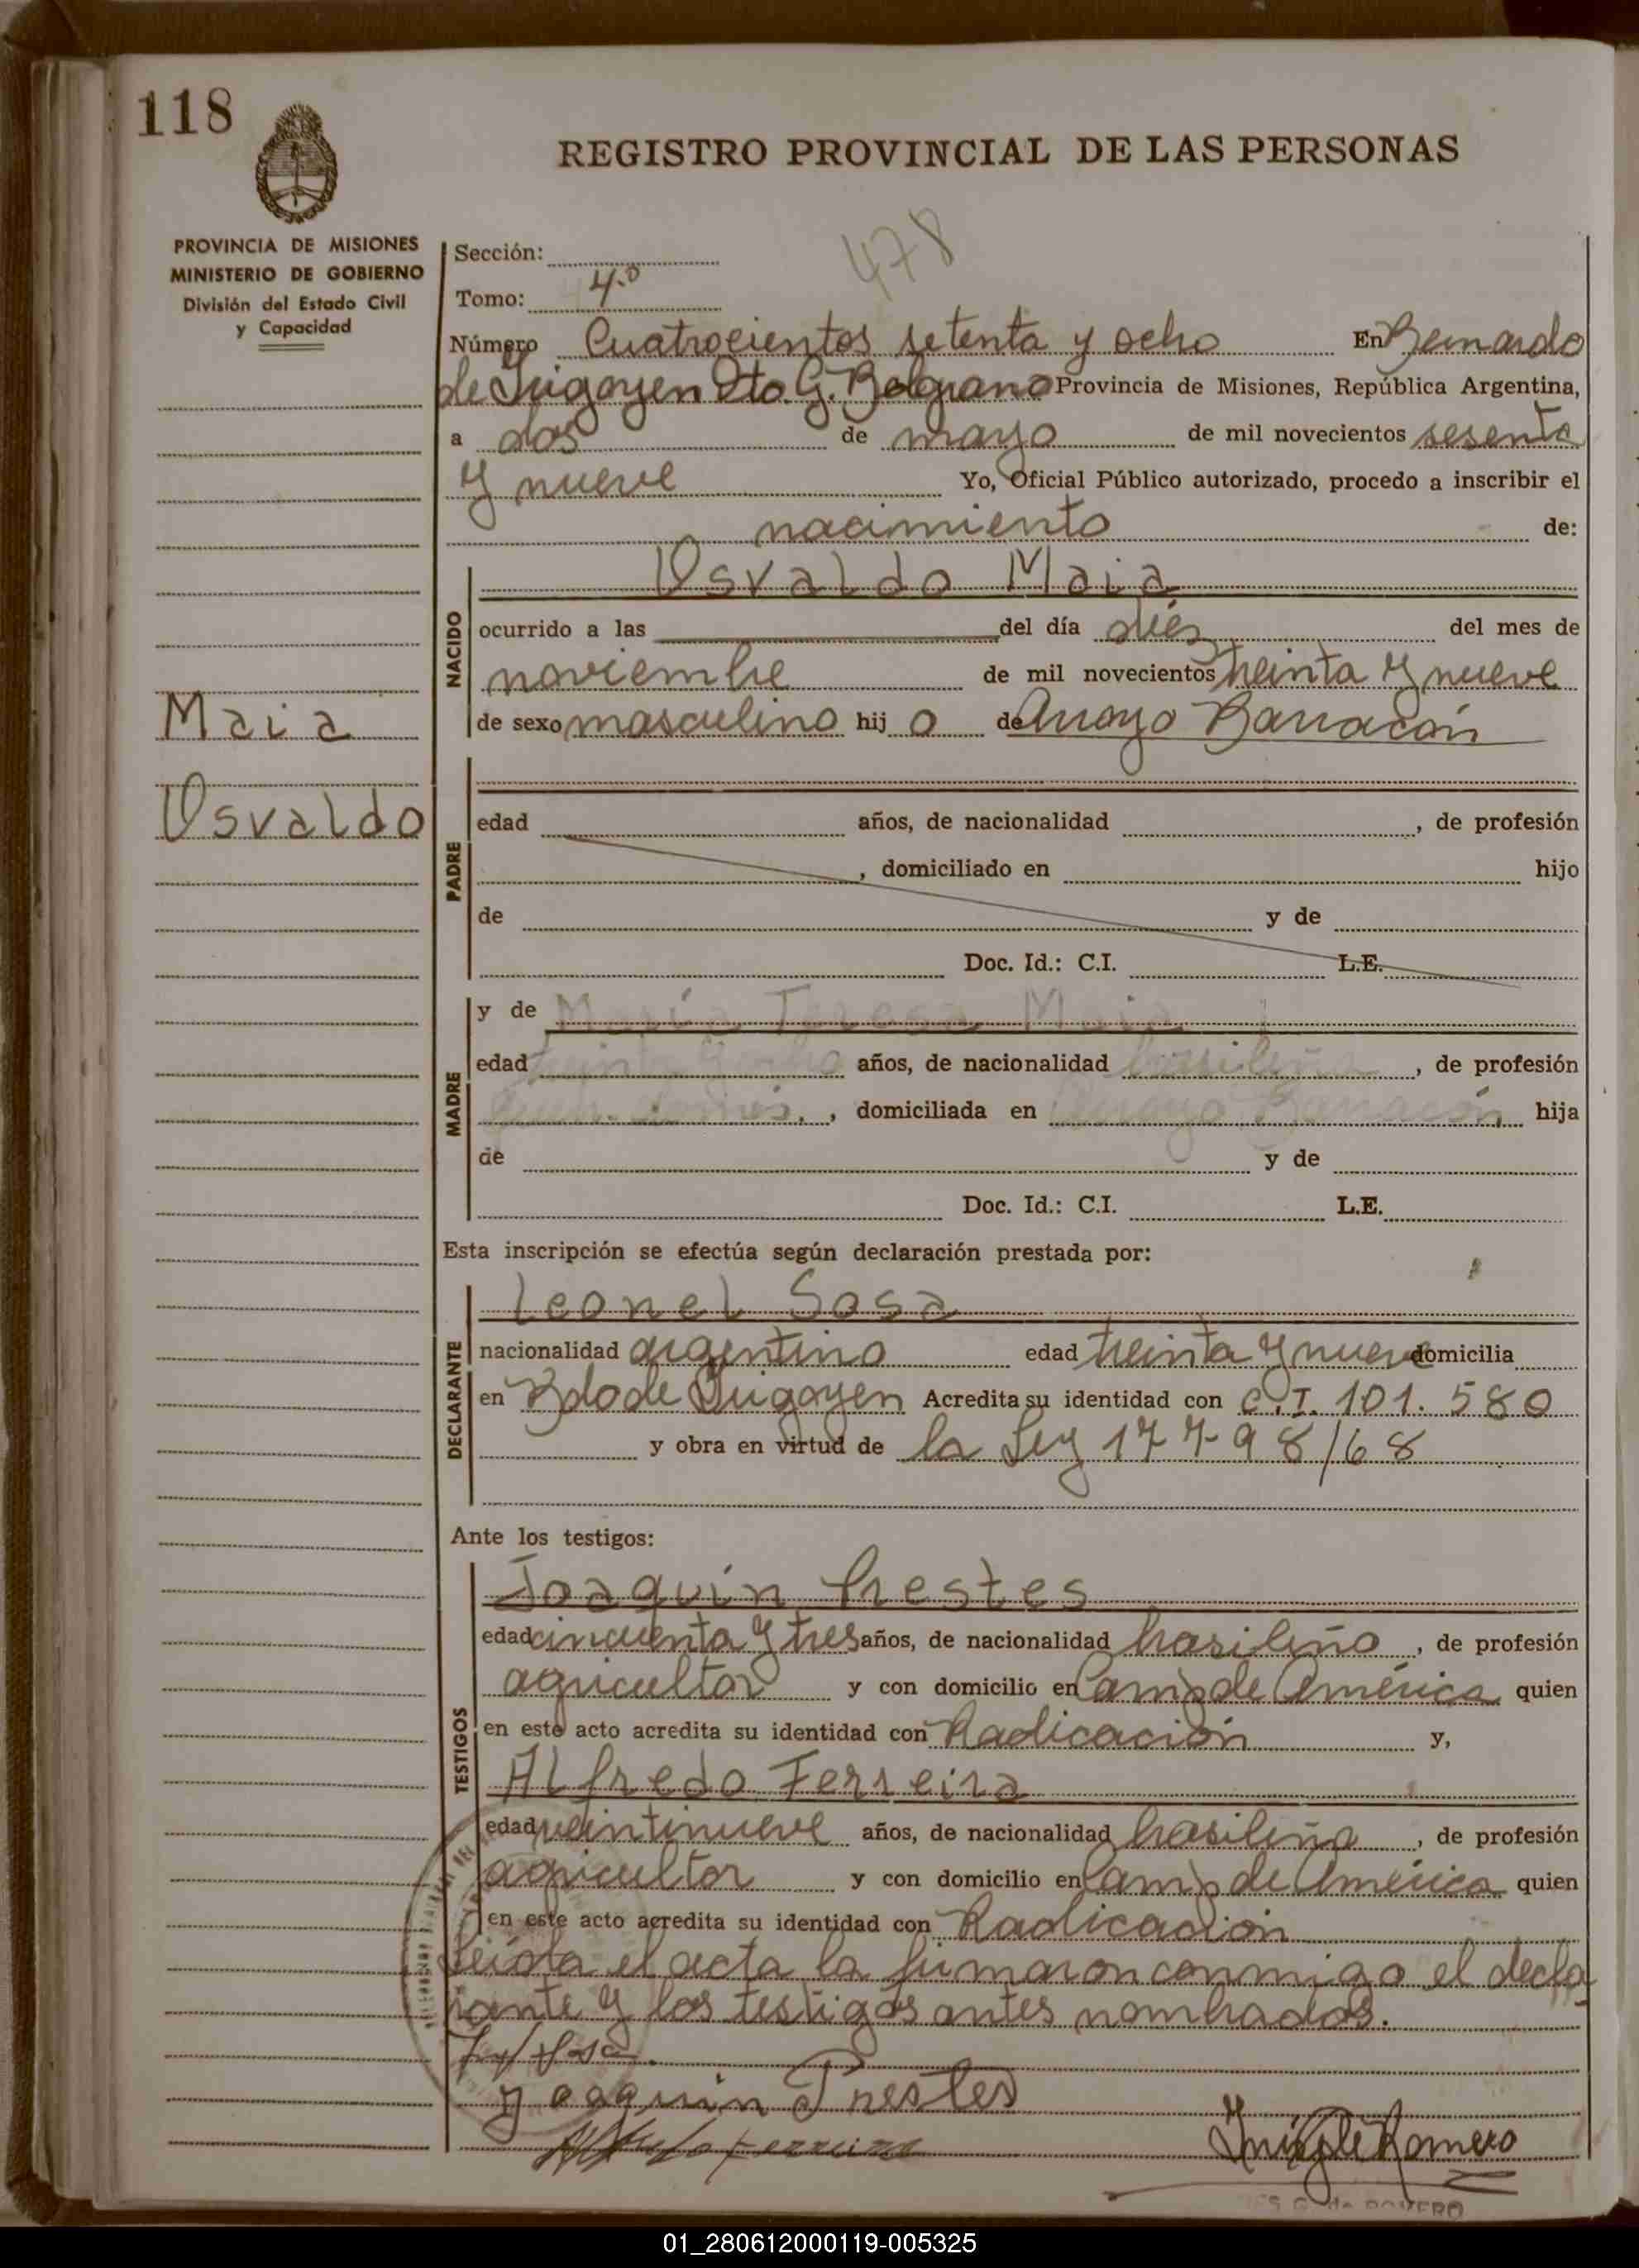 118
REGISTRO PROVINCIAL DE LAS PERSONAS
PROVINCIA DE MISIONES
MINISTERIO DE GOBIERNO
División del Estado Civil
y Capacidad
478
Sección:
Tomo: 4.º
Número Cuatrocientos setenta y ocho En Bernardo
de Irigoyen Dto. G. Belgrano Provincia de Misiones, República Argentina,
a dos de mayo de mil novecientos sesenta
y nueve Yo, Oficial Público autorizado, procedo a inscribir el
nacimiento de:
NACIDO
Osvaldo Maia
ocurrido a las del día diéz del mes de
noviembre de mil novecientos treinta y nueve
de sexo masculino hij o de Arroyo Barracón
Maia
Osvaldo
PADRE
edad años, de nacionalidad , de profesión
, domiciliado en hijo
de y de
Doc. Id.: C.I. L.E.
MADRE
y de María Teresa Maia
edad treinta y ocho años, de nacionalidad brasileña , de profesión
queh. domés. , domiciliada en Arroyo Barracón, hija
de y de
Doc. Id.: C.I. L.E.
Esta inscripción se efectúa según declaración prestada por:
DECLARANTE
Leonel Sosa
nacionalidad argentino edad treinta y nueve domicilia
en Bdo de Irigoyen Acredita su identidad con C.I. 101.580
y obra en virtud de la Ley 17798/68
Ante los testigos:
TESTIGOS
Joaquín Prestes
edad cincuenta y tres años, de nacionalidad brasileño , de profesión
agricultor y con domicilio en Camp de América quien
en este acto acredita su identidad con Radicación y,
Alfredo Ferreira
edad veintinueve años, de nacionalidad brasileña , de profesión
agricultor y con domicilio en Camp de América quien
en este acto acredita su identidad con Radicación
Leída el acta la firmaron conmigo el decla
rante y los testigos antes nombrados.
Joaquin Prestes
Alfredo Ferreira
de Romero
G. de ROMERO
01_280612000119-005325